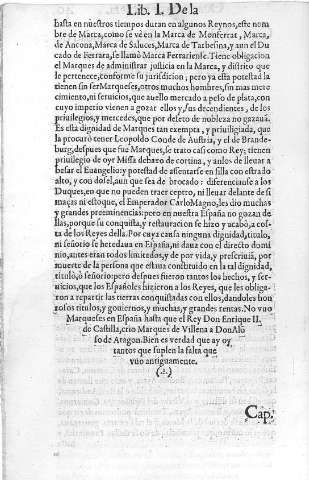 Lib. I. De la
hasta en nuestros tiempos duran en algunos Reynos, este nom
bre de Marca, como se vé en la Marca de Monferrat, Marca,
de Ancona, Marca de Saluces, Marca de Tarbesina, y aun el Du
cado de Ferrara, se llamò Marca Ferrariense. Tiene obligacion
el Marques de administrar justicia en la Marca, y distrito que
le pertenece, conforme su jurisdicion; pero ya esta potestad la
tienen sin ser Marqueses, otros muchos hombres, sin mas mere
cimiento, ni seruicios, que auello mercado a peso de plata, con
cuyo imperio vienen a gozar ellos y, sus decendientes, de los
priuilegios, y mercedes, que por defeto de nobleza no gozauã.
Es esta dignidad de Marques tan exempta, y priuiligiada, que
la procurò tener Leopoldo Conde de Austria, y el de Brande-
burg, despues que fue Marques, se trato casi como Rey; tienen
priuilegio de oyr Missa debaxo de cortina, y anlos de lleuar a
besar el Euangelio: y potestad de assentarse en silla con estrado
alto, y con dosel, aun que sea de brocado: diferenciause a los
Duques, en que no pueden traer ceptro, ni lleuar delante de sí
maças ni estoque, el Emperador Carlo Magno, les dio muchas
y grandes preeminencias: pero en nuestra España no gozan de
ellas, porque su conquista, y restauracion se hizo y acabò, a cos-
ta de los Reyes della. Por cuya causa ninguna dignidad, titulo,
ni señorio se heredaua en España, ni daua con el directo domi
nio, antes eran todos limitados, y de por vida, y prescriuiã, por
muerte de la persona que estaua constituido en la tal dignidad,
titulo, ò señorio: pero despues fueron tantos los hechos, y ser-
uicios, que los Españoles hizieron a los Reyes, que les obliga-
ron a repartir las tierras conquistadas con ellos, dandoles hon
rosos titulos, y gouiernos, y muchas, y grandes rentas. No vuo
Marqueses en España hasta que el Rey Don Enrique II.
de Castilla, crio Marques de Villena a Don Alõ
so de Aragon. Bien es verdad que ay oy
tantos que suplen la falta que
vuo antiguamente.
Cap.